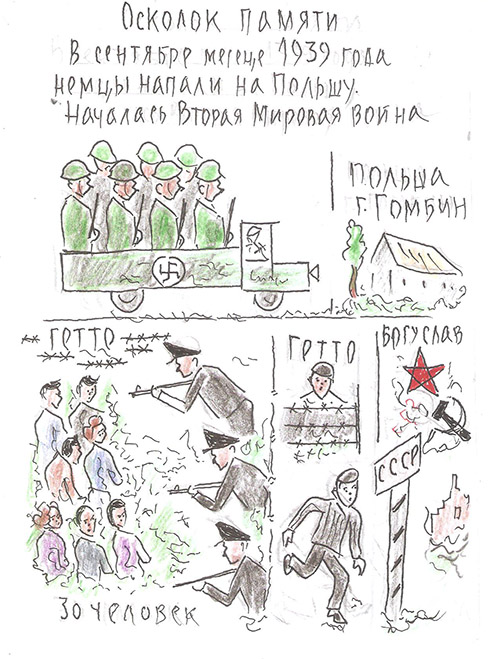 Осколок памяти
В сентябре месеце 1939 года
немцы напали на Польшу.
Началась Вторая Мировая война
Польша
г. Гомбин
Гетто
30 человек
Гетто
Богуслав
СССР